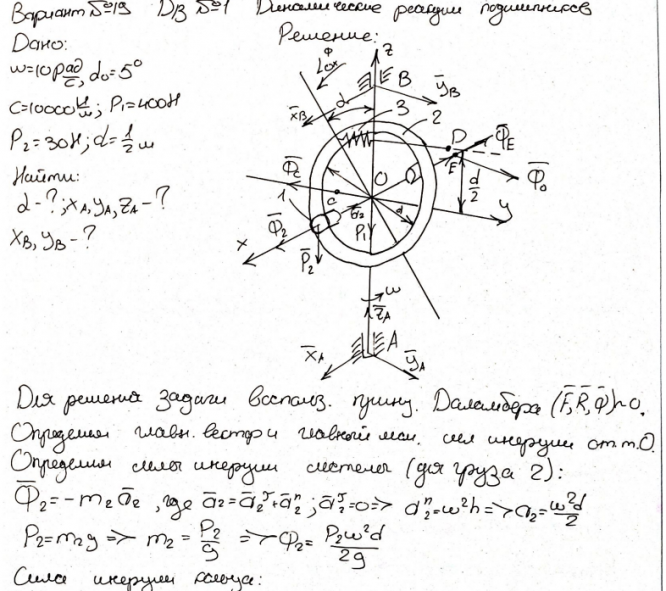 Вариант №19 ДВ №1 Динамические реакции подшипников
Дано:
Решение:
ω=10 рад/с, d₀=5°
c=10000 Н/м; P₁=400Н
P₂=30Н; d=1/2 м
Найти:
α-?; x_A, y_A, z_A-?
x_B, y_B-?
z
B
ȳ_B
x̄_B
Φ
α
3
2
D
Φ̄_E
E
Φ̄_D
Φ̄_C
1
C
O
d/2
y
ā₂
P̄₁
d
Φ̄₂
x
P̄₂
ω
z̄_A
A
x̄_A
ȳ_A
Для решения задачи воспольз. принц. Даламбера (F̄, R̄, Φ̄)~0.
Определим главн. вектор и главный мом. сил инерции отн. т.О.
Определим силы инерции системы (для груза 2):
Φ̄₂=-m₂ā₂, где ā₂=ā₂ᵗ+ā₂ⁿ; ā₂ᵗ=0=> a₂ⁿ=ω²h=>a₂=ω²d/2
P₂=m₂g => m₂=P₂/g => Φ₂=P₂ω²d/2g
Сила инерции кольца: